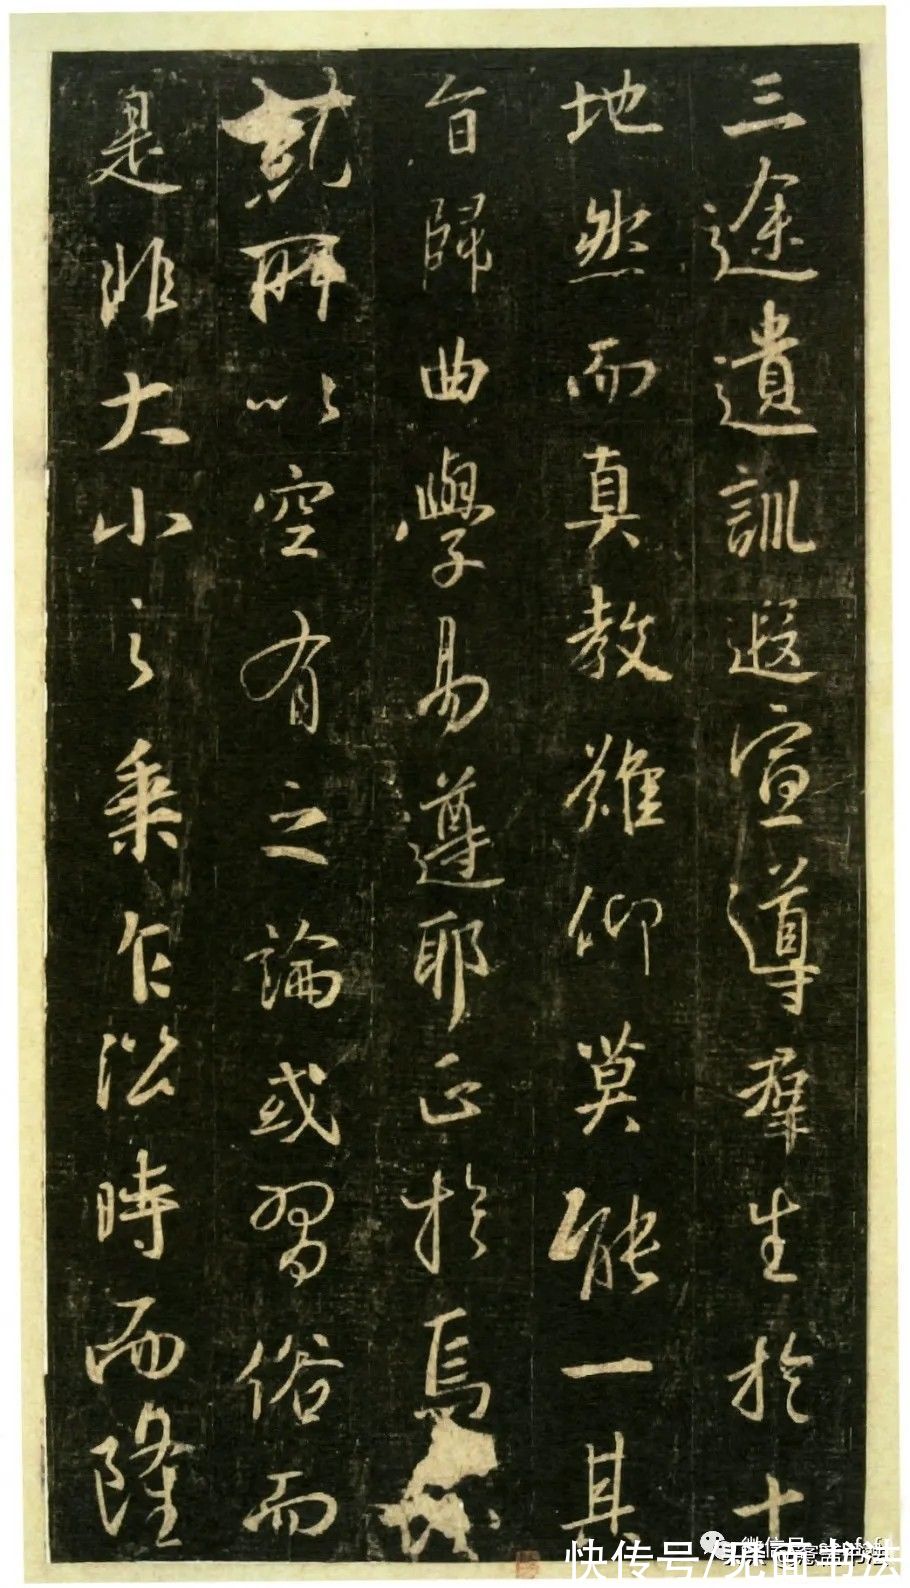 三途遺訓遐宣導羣生於十
地然而真教難仰莫能一其
旨歸曲學易遵耶正於焉
所以空有之論或習俗而
是非大小之乘乍沿時而隆
快传号/见面书法